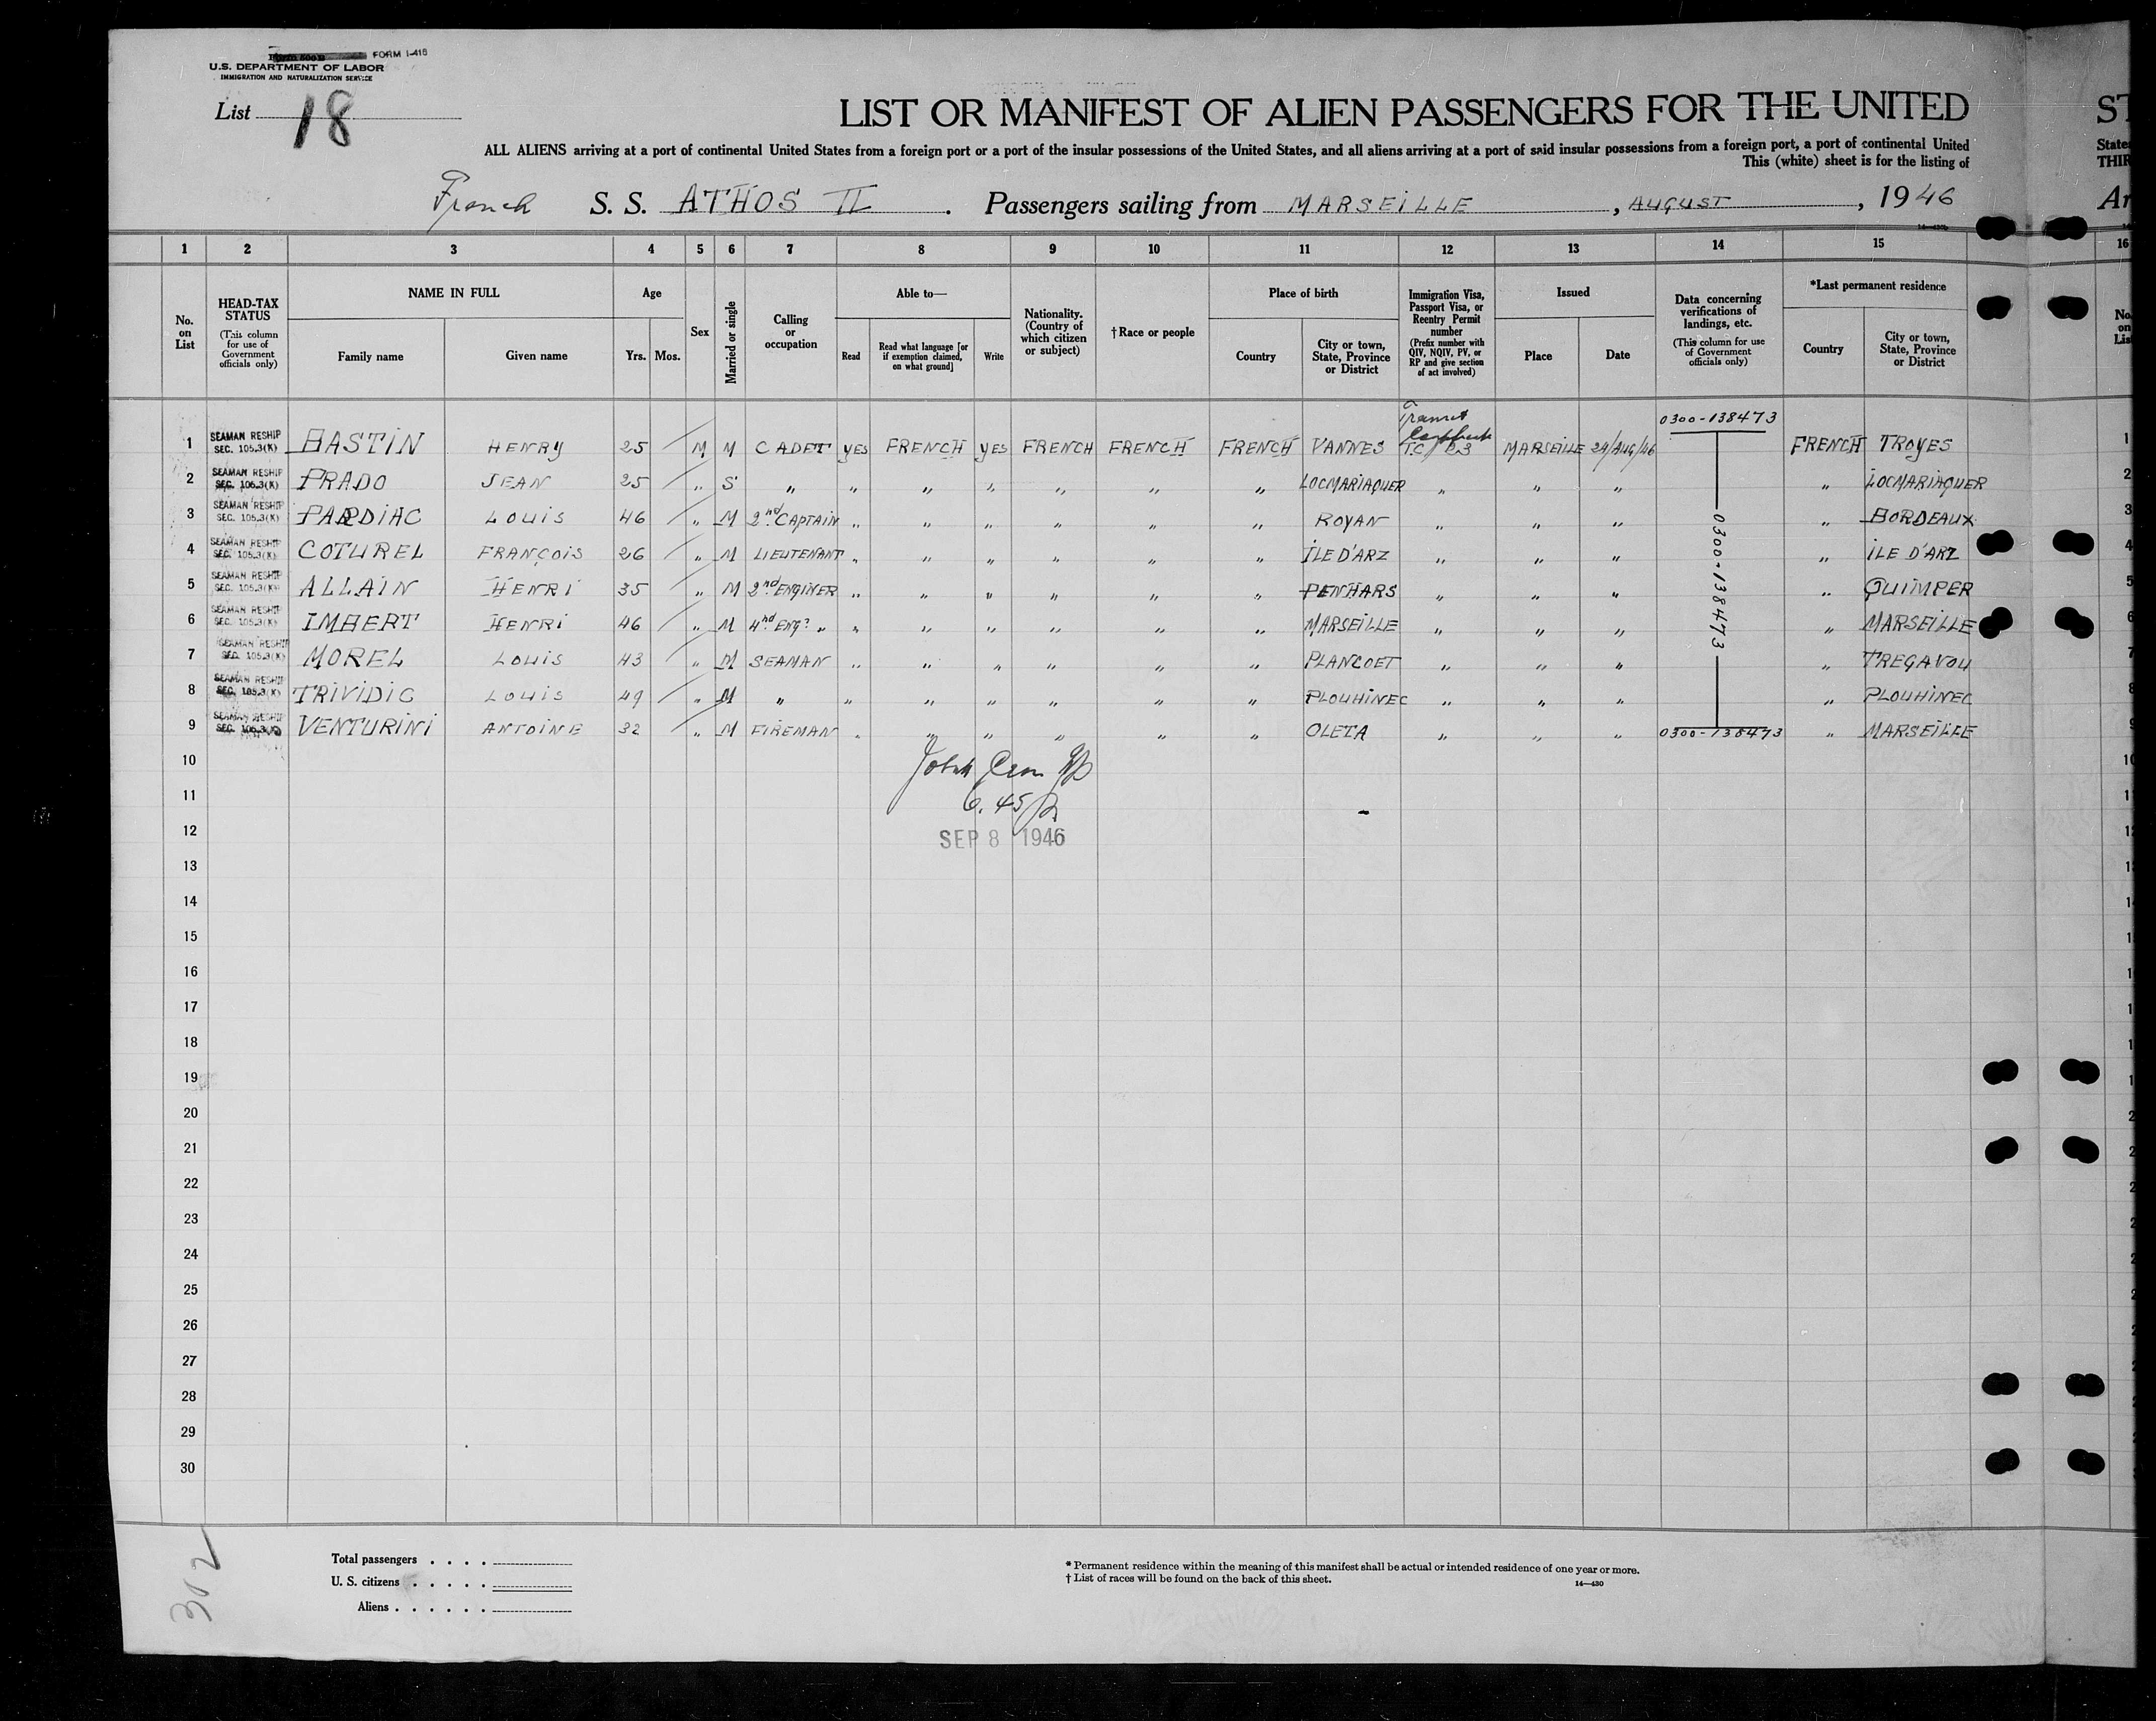 FORM I-416
U.S. DEPARTMENT OF LABOR
IMMIGRATION AND NATURALIZATION SERVICE
List 18
LIST OR MANIFEST OF ALIEN PASSENGERS FOR THE UNITED
ST
ALL ALIENS arriving at a port of continental United States from a foreign port or a port of the insular possessions of the United States, and all aliens arriving at a port of said insular possessions from a foreign port, a port of continental United
State
This (white) sheet is for the listing of
THIR
French S. S. ATHOS II . Passengers sailing from MARSEILLE , AUGUST , 1946
Ar
1 2 3 4 5 6 7 8 9 10 11 12 13 14 15 16
No. on List
HEAD-TAX STATUS
(This column for use of Government officials only)
NAME IN FULL
Family name
Given name
Age
Yrs. Mos.
Sex
Married or single
Calling or occupation
Able to—
Read
Read what language [or if exemption claimed, on what ground]
Write
Nationality. (Country of which citizen or subject)
†Race or people
Place of birth
Country
City or town, State, Province or District
Immigration Visa, Passport Visa, or Reentry Permit number
(Prefix number with QIV, NQIV, PV, or RP and give section of act involved)
Issued
Place
Date
Data concerning verifications of landings, etc.
(This column for use of Government officials only)
*Last permanent residence
Country
City or town, State, Province or District
Transit
0300-138473
1 SEAMAN RESHIP SEC. 105.3(K) BASTIN HENRY 25 M M CADET yES FRENCH yES FRENCH FRENCH FRENCH VANNES T.C/ 23 MARSEILLE 24/AUG/46 FRENCH TROYES 1
2 SEAMAN RESHIP SEC. 105.3(K) PRADO JEAN 25 " S " " " " " " " LOCMARIAQUER " " " " LOCMARIAQUER 2
3 SEAMAN RESHIP SEC. 105.3(K) PARDIAC LOUIS 46 " M 2nd CAPTAIN " " " " " " ROYAN " " " " BORDEAUX 3
4 SEAMAN RESHIP SEC. 105.3(K) COTUREL FRANÇOIS 26 " M LIEUTENANT " " " " " " ILE D'ARZ " " " " ILE D'ARZ 4
5 SEAMAN RESHIP SEC. 105.3(K) ALLAIN HENRI 35 " M 2nd ENGINER " " " " " " PENHARS " " " " QUIMPER 5
6 SEAMAN RESHIP SEC. 105.3(K) IMBERT HENRI 46 " M 4nd ENG? " " " " " " " MARSEILLE " " " " MARSEILLE 6
7 SEAMAN RESHIP SEC. 105.3(K) MOREL LOUIS 43 " M SEAMAN " " " " " " PLANCOET " " " " TREGAVOU 7
8 SEAMAN RESHIP SEC. 105.3(K) TRIVIDIC LOUIS 49 " M " " " " " " " PLOUHINEC " " " " PLOUHINEC 8
9 SEAMAN RESHIP SEC. 105.3(K) VENTURINI ANTOINE 32 " M FIREMAN " " " " " " OLETA " " " 0300-138473 " MARSEILLE 9
0300-138473
10
11 6.45
12 SEP 8 1946
13
14
15
16
17
18
19
20
21
22
23
24
25
26
27
28
29
30
302
Total passengers . . . .
U. S. citizens . . . . .
Aliens . . . . . .
* Permanent residence within the meaning of this manifest shall be actual or intended residence of one year or more.
† List of races will be found on the back of this sheet.
14—430